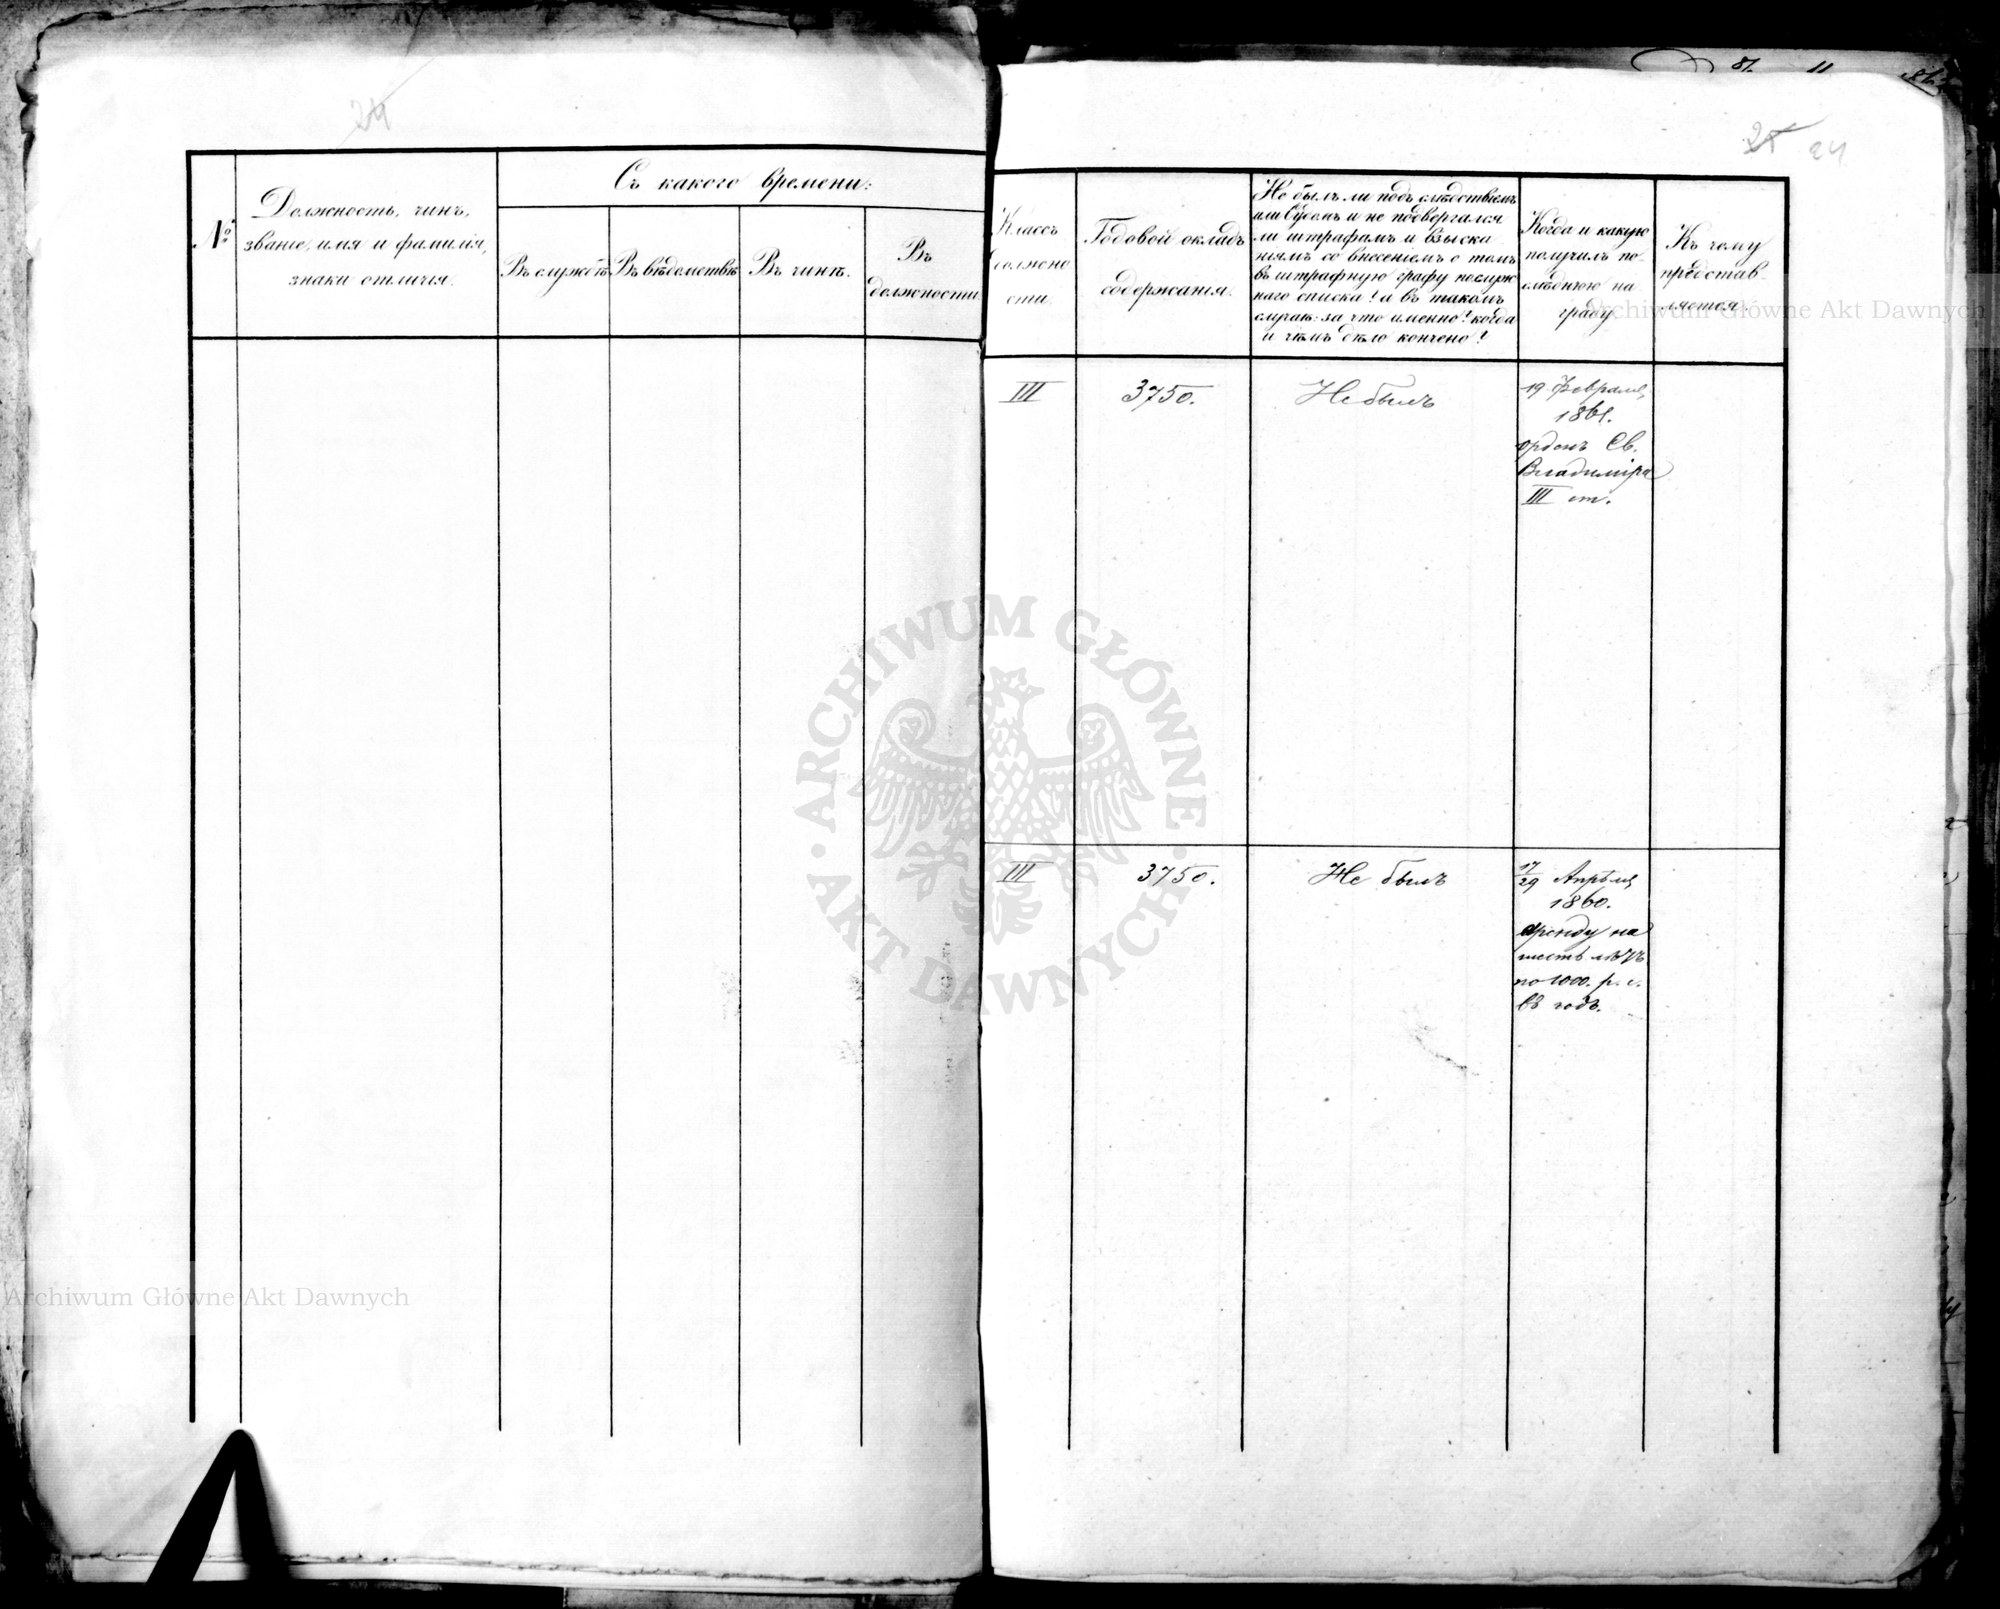 24
№
Должность, чинъ,
званіе, имя и фамилія,
знаки отличія.
Съ какого времени:
Въ службѣ
Въ вѣдомствѣ
Въ чинѣ.
Въ
должности
25 24
Классъ
должно
сти.
Годовой окладъ
содержанія.
Не былъ ли подъ слѣдствіемъ
или Судомъ и не подвергался
ли штрафамъ и взыска
ніямъ со внесеніемъ о томъ
въ штрафную графу послуж
наго списка? а въ такомъ
случаѣ за что именно? когда
и чѣмъ дѣло кончено?
Когда и какую
получилъ по-
слѣднюю на
граду
Къ чему
представ-
ляется.
Archiwum Główne Akt Dawnych
III
3750.
Не былъ
19 Февраля
1861.
орденъ Св.
Владиміра
III ст.
ARCHIWUM GŁÓWNE
AKT DAWNYCH
III
3750.
Не былъ
17/29 Апрѣля
1860.
аренду на
шесть лѣтъ
по 1000. р. с.
въ годъ.
Archiwum Główne Akt Dawnych